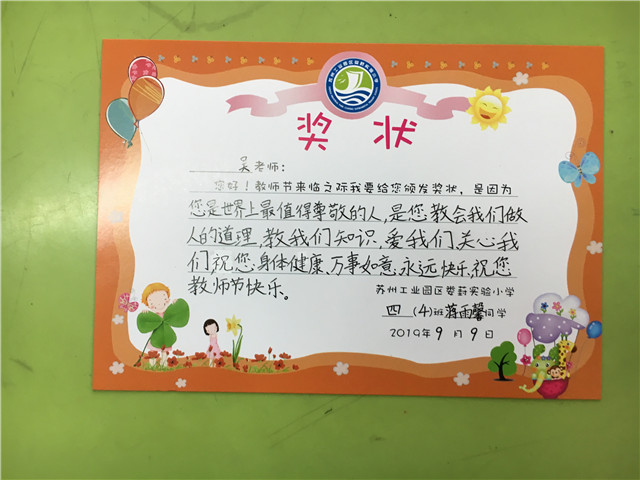 奖 状
吴老师：
您好！教师节来临之际我要给您颁发奖状，是因为
您是世界上最值得尊敬的人，是您教会我们做
人的道理，教我们知识，爱我们，关心我
们，祝您：身体健康，万事如意，永远快乐，祝您
教师节快乐。
苏州工业园区娄葑实验小学
四（4）班蒋雨馨同学
2019年9月9日